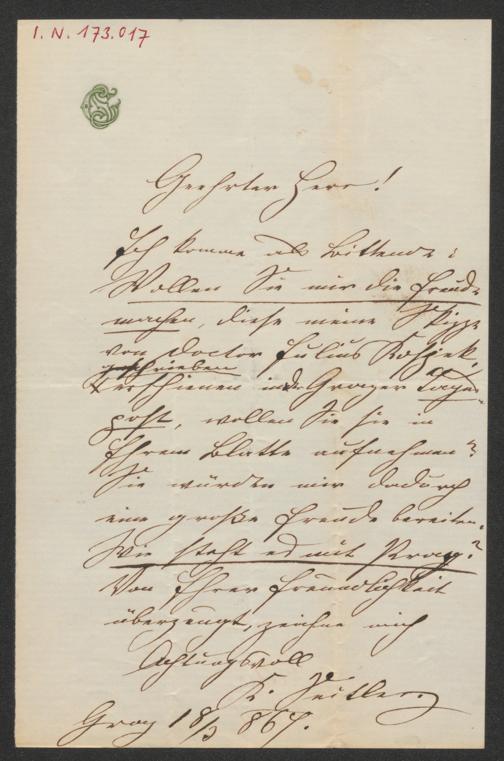 I. N. 173.017
Geehrter Herr!
Ich komme als Bittende:
Wollen Sie mir die Freude
machen, diese meine Skizze
von Doctor Julius
geschrieben
erschienen in der Grazer Tages-
post, wollen Sie sie in
Ihrem Blatte aufnehmen?
Sie würden mir dadurch
eine große Freude bereiten.
Wie steht es mit Prag?
Von Ihrer Freundlichkeit
überzeugt, zeichne mich
Achtungsvoll
K.
Graz 18/3 867.